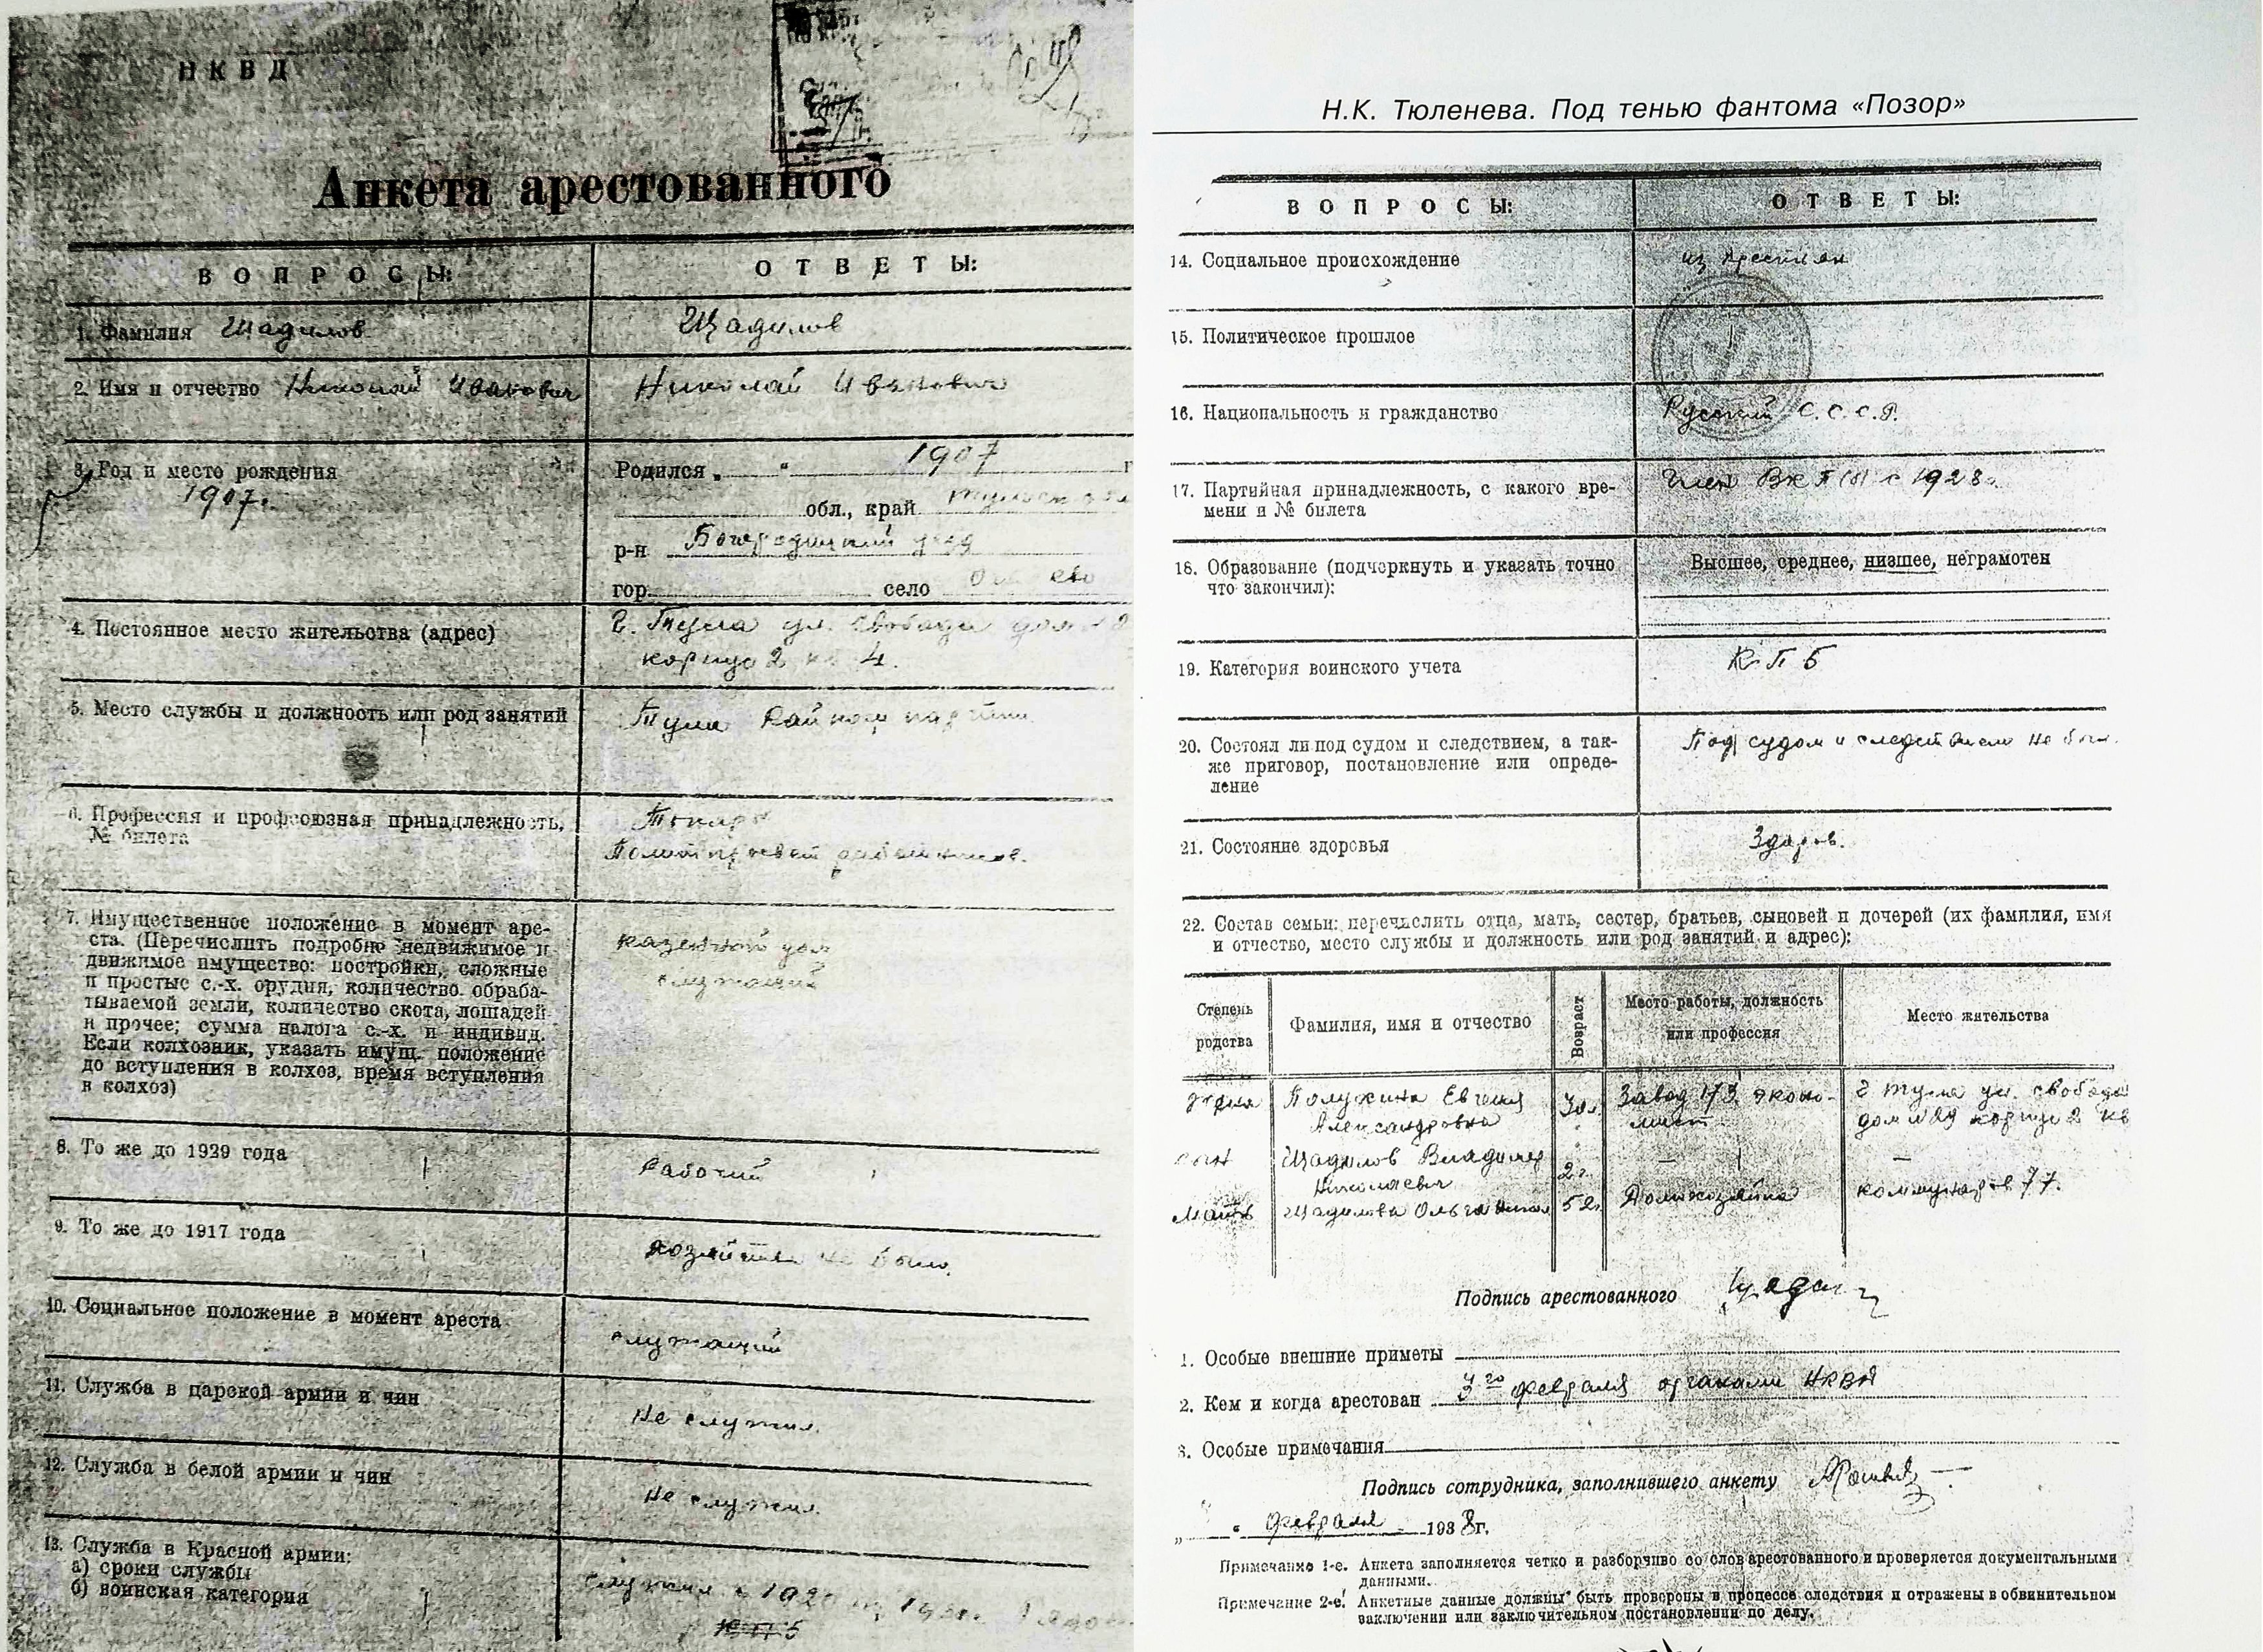 НКВД
Анкета арестованного
ВОПРОСЫ:
ОТВЕТЫ:
1. Фамилия Щадилов
Щадилов
2. Имя и отчество Николай Иванович
Николай Иванович
3. Год и место рождения
1907г.
Родился „ “ 1907 г
обл., край
р-н Богородицкий уезд
гор. село
4. Постоянное место жительства (адрес)
г. Тула ул. Свободы дом
корпус 2 кв 4.
5. Место службы и должность или род занятий
Тула
6. Профессия и профсоюзная принадлежность,
№ билета
Токарь
7. Имущественное положение в момент аре-
ста. (Перечислить подробно недвижимое и
движимое имущество: постройки, сложные
и простые с.-х. орудия, количество обраба-
тываемой земли, количество скота, лошадей
и прочее; сумма налога с.-х. и индивид.
Если колхозник, указать имущ. положение
до вступления в колхоз, время вступления
в колхоз)
казенный дом
служащий
8. То же до 1929 года
Рабочий
9. То же до 1917 года
хозяйства не было.
10. Социальное положение в момент ареста
служащий
11. Служба в царской армии и чин
не служил.
12. Служба в белой армии и чин
не служил.
13. Служба в Красной армии:
а) сроки службы
б) воинская категория
служил с
Н.К. Тюленева. Под тенью фантома «Позор»
ВОПРОСЫ:
ОТВЕТЫ:
14. Социальное происхождение
из крестьян
15. Политическое прошлое
16. Национальность и гражданство
Русский С.С.С.Р.
17. Партийная принадлежность, с какого вре-
мени и № билета
Член ВКП(б) с 1928г.
18. Образование (подчеркнуть и указать точно
что закончил):
Высшее, среднее, низшее, неграмотен
19. Категория воинского учета
К П Б
20. Состоял ли под судом и следствием, а так-
же приговор, постановление или опреде-
ление
Под судом и следствием не был.
21. Состояние здоровья
Здоров.
22. Состав семьи: перечислить отца, мать, сестер, братьев, сыновей и дочерей (их фамилия, имя
и отчество, место службы и должность или род занятий и адрес):
Степень
родства
Фамилия, имя и отчество
Возраст
Место работы, должность
или профессия
Место жительства
жена
Полухина Евгения
Александровна
30л.
Завод 173 эконо-
мист
г Тула ул. свободы
дом №29 корпус 2 кв
сын
Щадилов Владимир
Николаевич
2г.
—
—
Мать
Щадилова Ольга
52
Домохозяйка
коммунаров 77.
Подпись арестованного
1. Особые внешние приметы
2. Кем и когда арестован 3го февраля органами НКВД
3. Особые примечания
Подпись сотрудника, заполнившего анкету
„ “ февраля 1938г.
Примечание 1-е. Анкета заполняется четко и разборчиво со слов арестованного и проверяется документальными
данными.
Примечание 2-е. Анкетные данные должны быть проверены в процессе следствия и отражены в обвинительном
заключении или заключительном постановлении по делу.